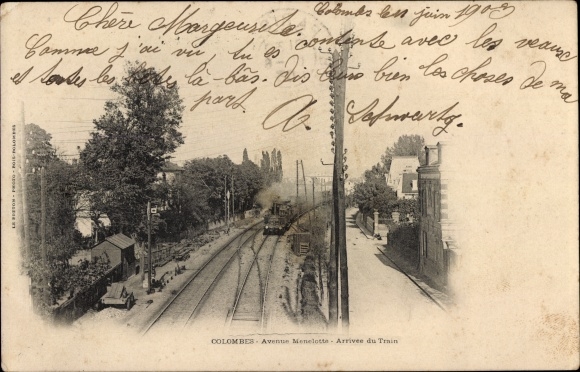 Chère Margeurite. Colombes le 11 juin 1903
Comme j'ai vu tu es contente avec les veaux
et toutes les bêtes là-bàs. Dis leur bien les choses de ma
part. A. Schwartz.
LE BRETON - PHOTO - BOIS-COLOMBES
COLOMBES - Avenue Menelotte - Arrivée du Train